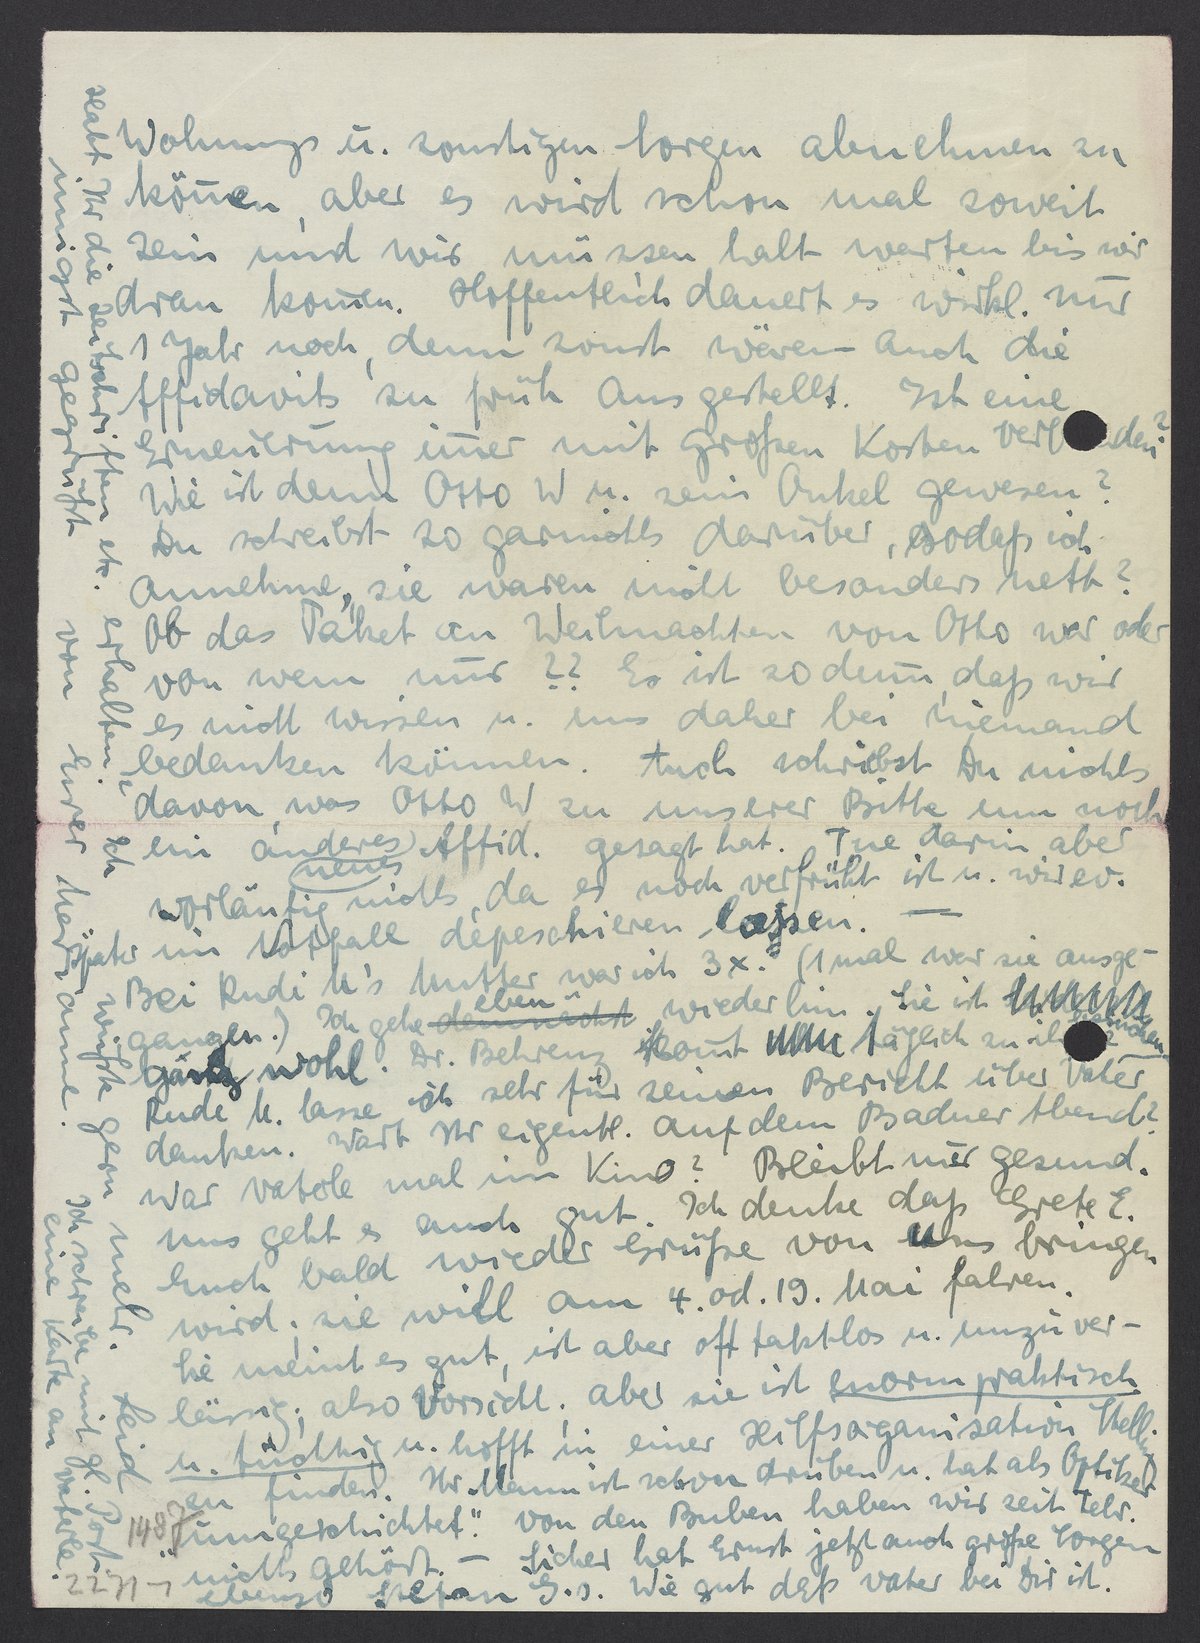 Wohnungs u. sonstigen Sorgen abnehmen zu
können, aber es wird schon mal soweit
sein und wir müssen halt warten bis wir
dran kom̄en. Hoffentlich dauert es wirkl. nur
1 Jahr noch, denn sonst wären auch die
Affidavits zu früh ausgestellt. Ist eine
Erneuerung im̄er mit großen Kosten verb den?
Wie ist denn Otto W u. sein Onkel gewesen?
Du schreibst so garnichts darüber, sodaß ich
annehme, sie waren nicht besonders nett?
Ob das Paket an Weihnachten von Otto war oder
von wem nur?? Es ist so dum̄, daß wir
es nicht wissen u. uns daher bei niemand
bedanken können. Auch schreibst Du nichts
davon, was Otto W zu unserer Bitte um noch
ein anderes Affid. gesagt hat. Tue darin aber
neues
vorläufig nichts, da es noch verfrüht ist u. wir ev.
später im Notfall depeschieren lassen. —
Bei Rudi M's Mutter war ich 3x. (1 mal war sie ausge-
gangen.) Ich gehe demnächst wieder hin. Sie ist
eben
ganz wohl. Dr. Behrens kom̄t täglich zu ihr
Rudi M. lasse ich sehr für seinen Bericht über Vater
danken. Wart Ihr eigentl. auf dem Badner Abend?
War Vaterle mal im Kino? Bleibt nur gesund.
Uns geht es auch gut. Ich denke daß Grete E.
Euch bald wieder Grüße von uns bringen
wird; sie will am 4. od. 19. Mai fahren.
Sie meint es gut, ist aber oft taktlos u. unzuver-
lässig; also Vorsicht. Aber sie ist enorm praktisch
u. tüchtig u. hofft in einer Hilfsorganisation Stellung
zu finden. Ihr Mann ist schon drüben u. hat als Optiker
"umgeschichtet". Von den Buben haben wir seit Febr.
nichts gehört. — Sicher hat Ernst jetzt auch große Sorgen
ebenso Stefan G.s. Wie gut daß Vater bei Dir ist.
Habt Ihr die Zeitschriften etc. erhalten? Ich wüßte gern mehr. Seid
innigst gegrüßt von Eurer Marianne.
Ich schreibe mit gl. Post
eine Karte an Vaterle.